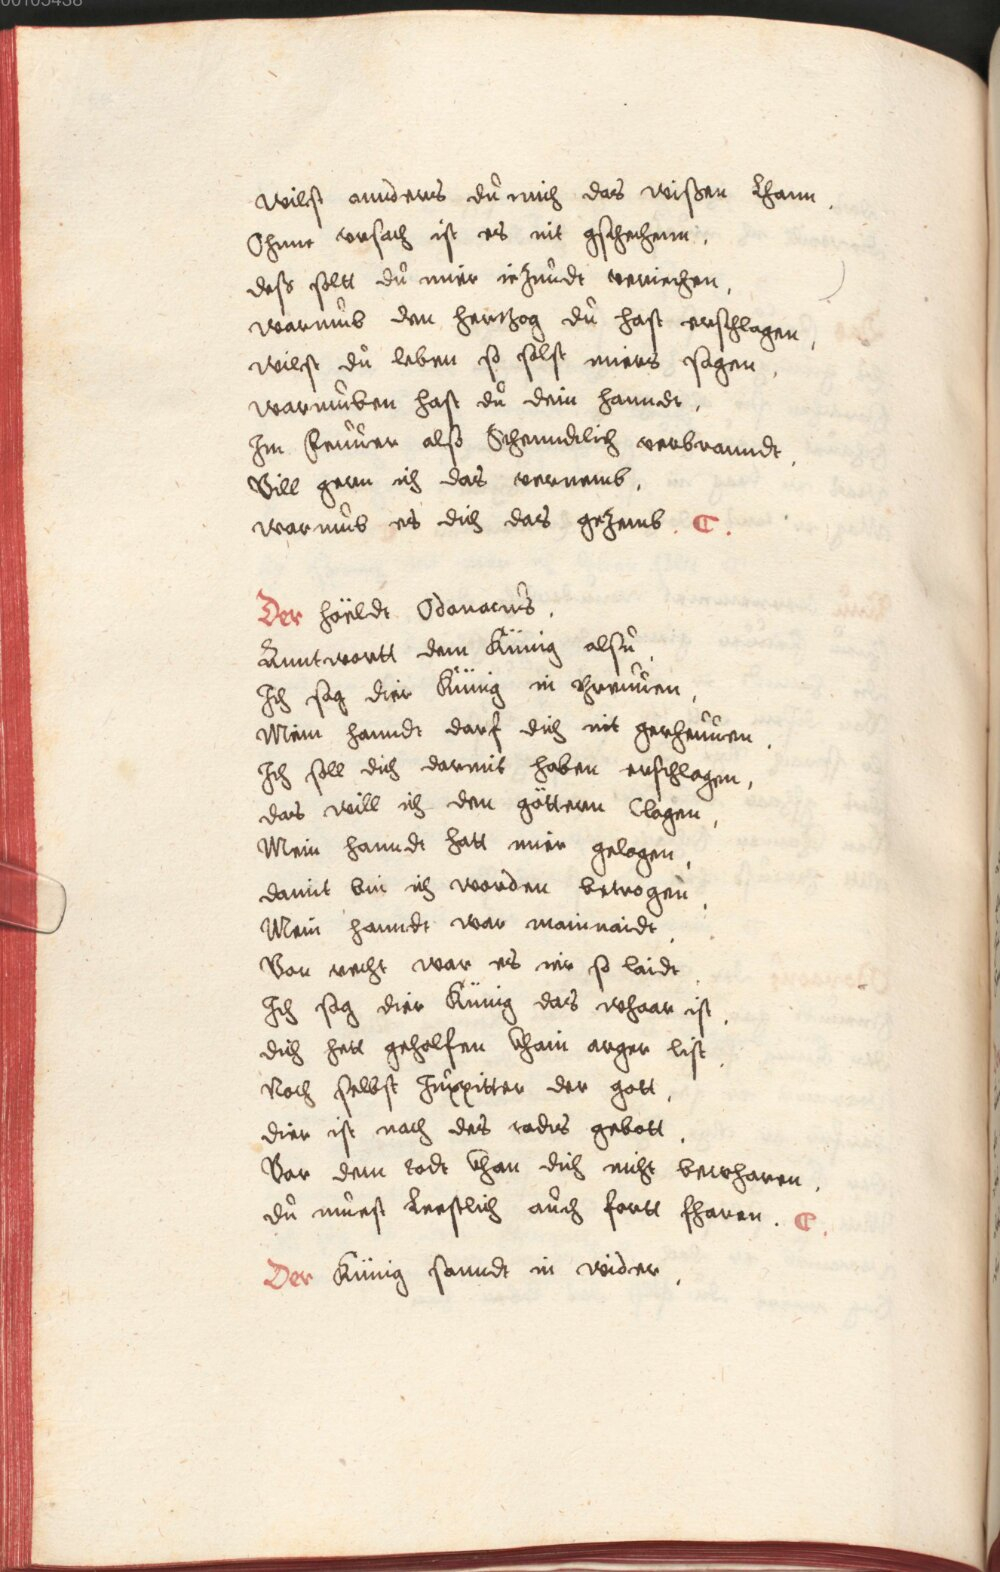 00105458
wilst annders dů mich das wißen Lhann,
Ohnne vrsach ist es nit gschehenn,
dess soltt dů mier ieZundt veriechen,
warumb den hertzog dů hast erschlagen,
wilst dů leben so solst miers sagen,
warumben hast dů dein hanndt,
Im Feuwer alß Schenndtlich verbranndt,
Vill gern ich das vernemb,
warumb es dich das geZemb. C.
Der höeldt Odonacrus,
Anntwortt dem Künig alsu,
Ich sag dier Künig in threuwen,
Mein hanndt darf dich nit gerheuwen,
Ich soll dich darmit haben erschlagen,
das will ich den göttern Clagen,
Mein hanndt hatt mier gelogen,
damit bin ich worden betrogen,
Mein hanndt war mainnaidt,
Von recht war es mir so laidt,
Ich sag dier Künig das whaar ist,
dich hett geholfen Khain arger list,
Noch selbst Juppitter der gott,
dier ist nach des todts gebott,
Vor dem todt Khan dich nicht bewharen,
dů muest Leestlich auch fortt fharen. C.
Der Künig sanndt in wider,